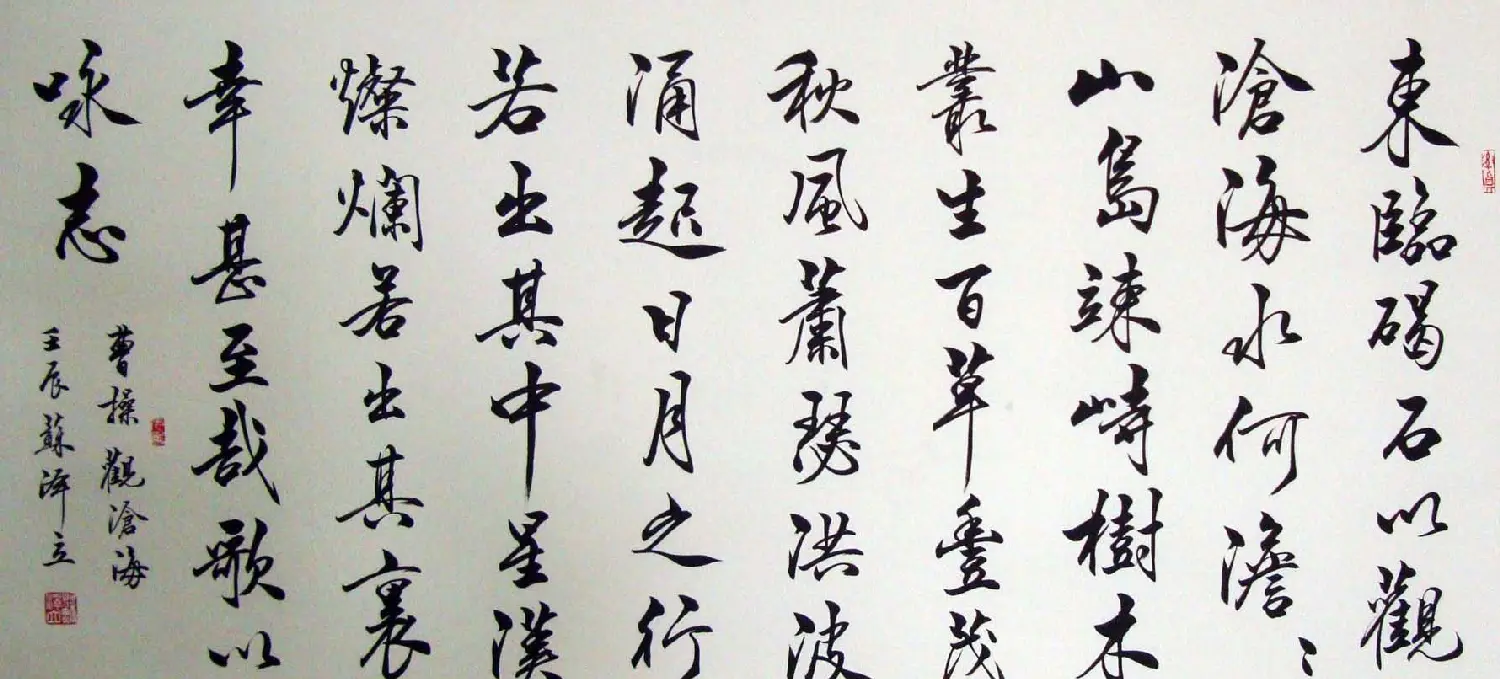 東臨碣石以觀
滄海水何澹〻
山島竦峙樹木
叢生百草豐茂
秋風蕭瑟洪波
涌起日月之行
若出其中星漢
燦爛若出其裏
幸甚至哉歌以
咏志
曹操觀滄海
壬辰蘇澤立